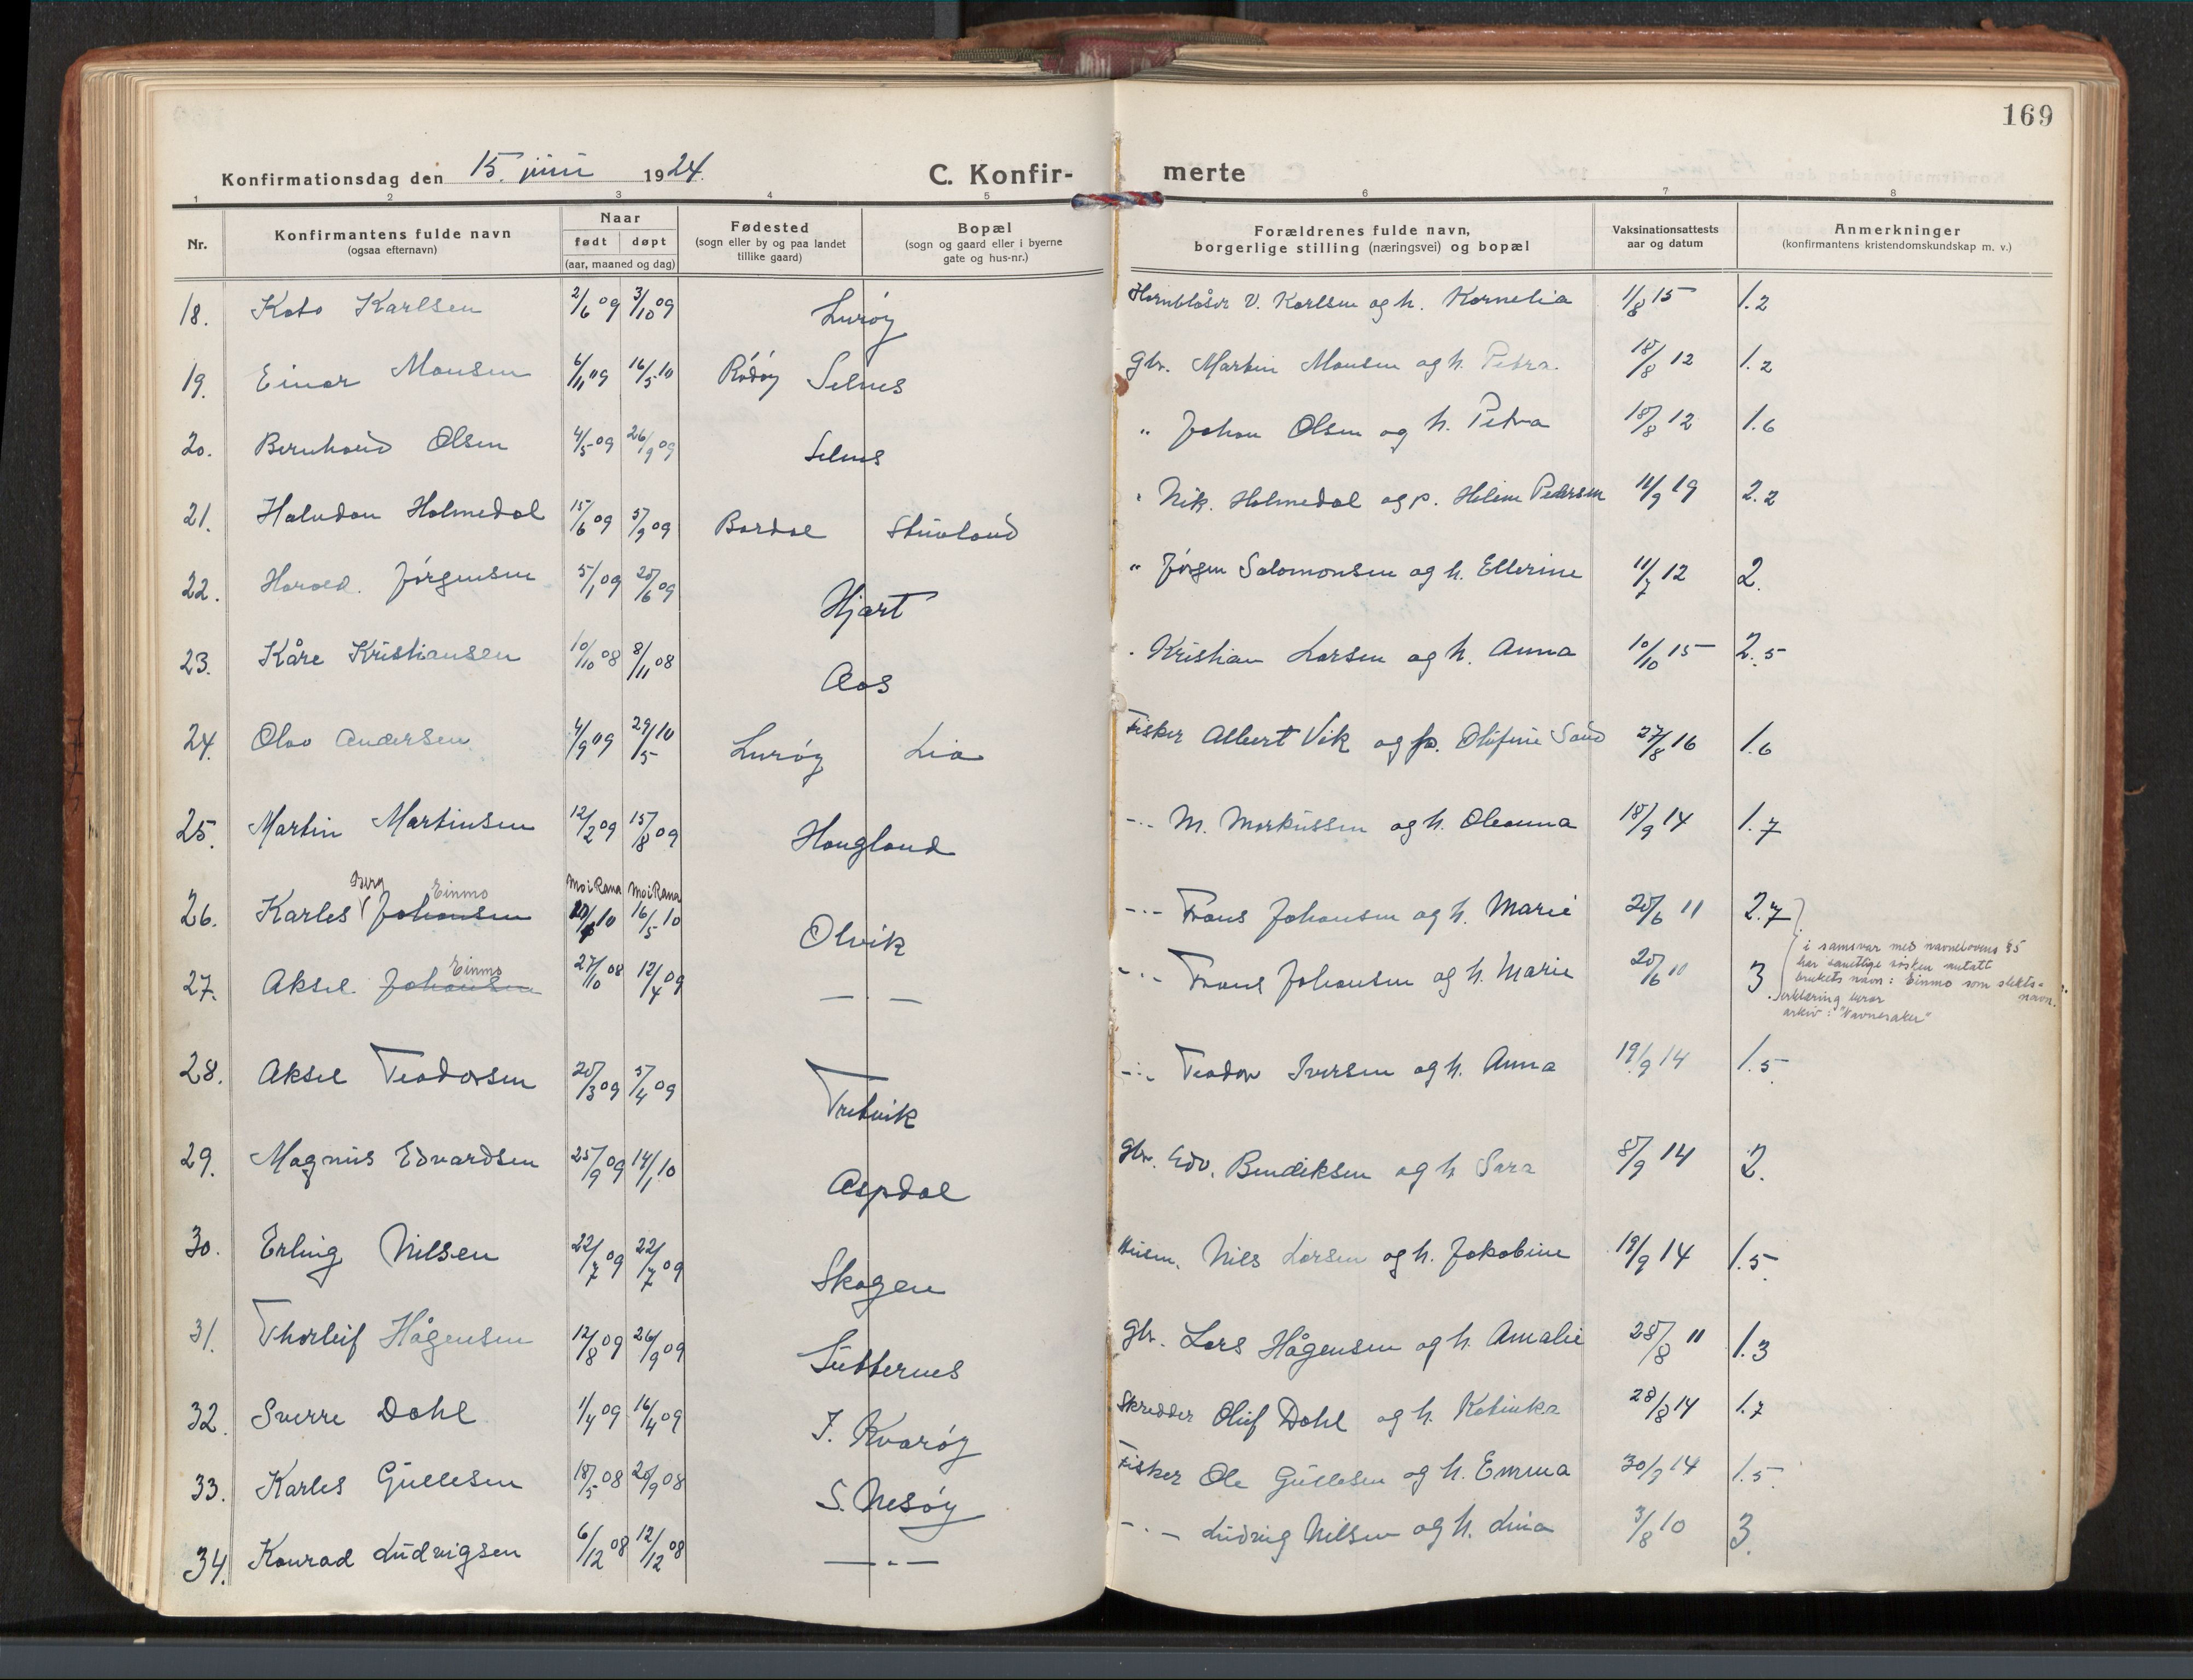 169
Konfirmationsdag den 15. juni 1924. C. Konfirmerte
1 2 3 4 5 6 7 8
Nr. Konfirmantens fulde navn (ogsaa efternavn) Naar født døpt (aar, maaned og dag) Fødested (sogn eller by og paa landet tillike gaard) Bopæl (sogn og gaard eller i byerne gate og hus-nr.) Forældrenes fulde navn, borgerlige stilling (næringsvei) og bopæl Vaksinationsattests aar og datum Anmerkninger (konfirmantens kristendomskundskap m. v.)
18. Kato Karlsen 2/6 09 3/10 09 Lurøy Hornblåser V. Karlsen og h. Kornelia 11/8 15 1.2
19. Einar Monsen 6/11 09 16/5 10 Rödöy Selnes Gbr. Martin Monsen og h. Petra. 18/8 12 1.2
20. Bernhard Olsen 4/5 09 26/9 09 Selnes " Johan Olsen og h. Petra 18/8 12 1.6
21. Halvdan Holmedal 15/6 09 5/9 09 Bardal Stuvland " Nik. Holmedal og p. Helene Pedersen 11/9 19 2.2
22. Harald Jörgensen 5/1 09 20/6 09 Hjart " Jörgen Salomonsen og h. Ellerine 11/7 12 2.
23. Kåre Kristiansen 10/10 08 8/11 08 Aas " Kristian Larsen og h. Anna 10/10 15 2.5
24. Olav Andersen 4/9 09 29/5 10 Lurøy Lia Fisker Albert Vik og p. Olufine Sand 27/8 16 1.6
25. Martin Martinsen 12/2 09 15/8 09 Haugland -"- M. Markussen og h. Oleanna 18/9 14 1.7
Berg Einmo Mo i Rana Mo i Rana
26. Karles Johansen 10 16/5 10 Olvik -"- Frans Johansen og h. Marie 20/6 11 2.7
Einmo
27. Aksel Johansen 27/10 08 12/4 09 — — -"- Frans Johansen og h. Marie 20/6 10 3
i samsvar med navnelovens § 5
har samtlige söskende antatt
brukets navn: Einmo som slekts-
navn.
erklæring
arkiv: "Navnesaker"
28. Aksel Teodorsen 20/3 09 5/4 09 Tretvik -"- Teodor Iversen og h. Anna 19/9 14 1.5
29. Magnus Edvardsen 25/9 09 14/1 10 Aspdal Gbr. Edv. Bendiksen og h. Sara 8/9 14 2.
30. Erling Nilsen 22/7 09 22/7 09 Skogen Husm. Nils Larsen og h. Jakobine 19/9 14 1.5
31. Thorleif Hågensen 12/8 09 26/9 09 Lutternes Gbr. Lars Hågensen og h. Amalie 28/8 11 1.3
32. Sverre Dahl 1/4 09 16/4 09 I. Kvarøy Skredder Oluf Dahl og h. Katinka 28/8 14 1.7
33. Karles Gullesen 18/5 08 20/9 08 S. Nesøy Fisker Ole Gullesen og h. Emma 30/9 14 1.5
34. Konrad Ludvigsen 6/12 08 12/12 08 — " — -"- Ludvig Nilsen og h. Lina 3/8 10 3.